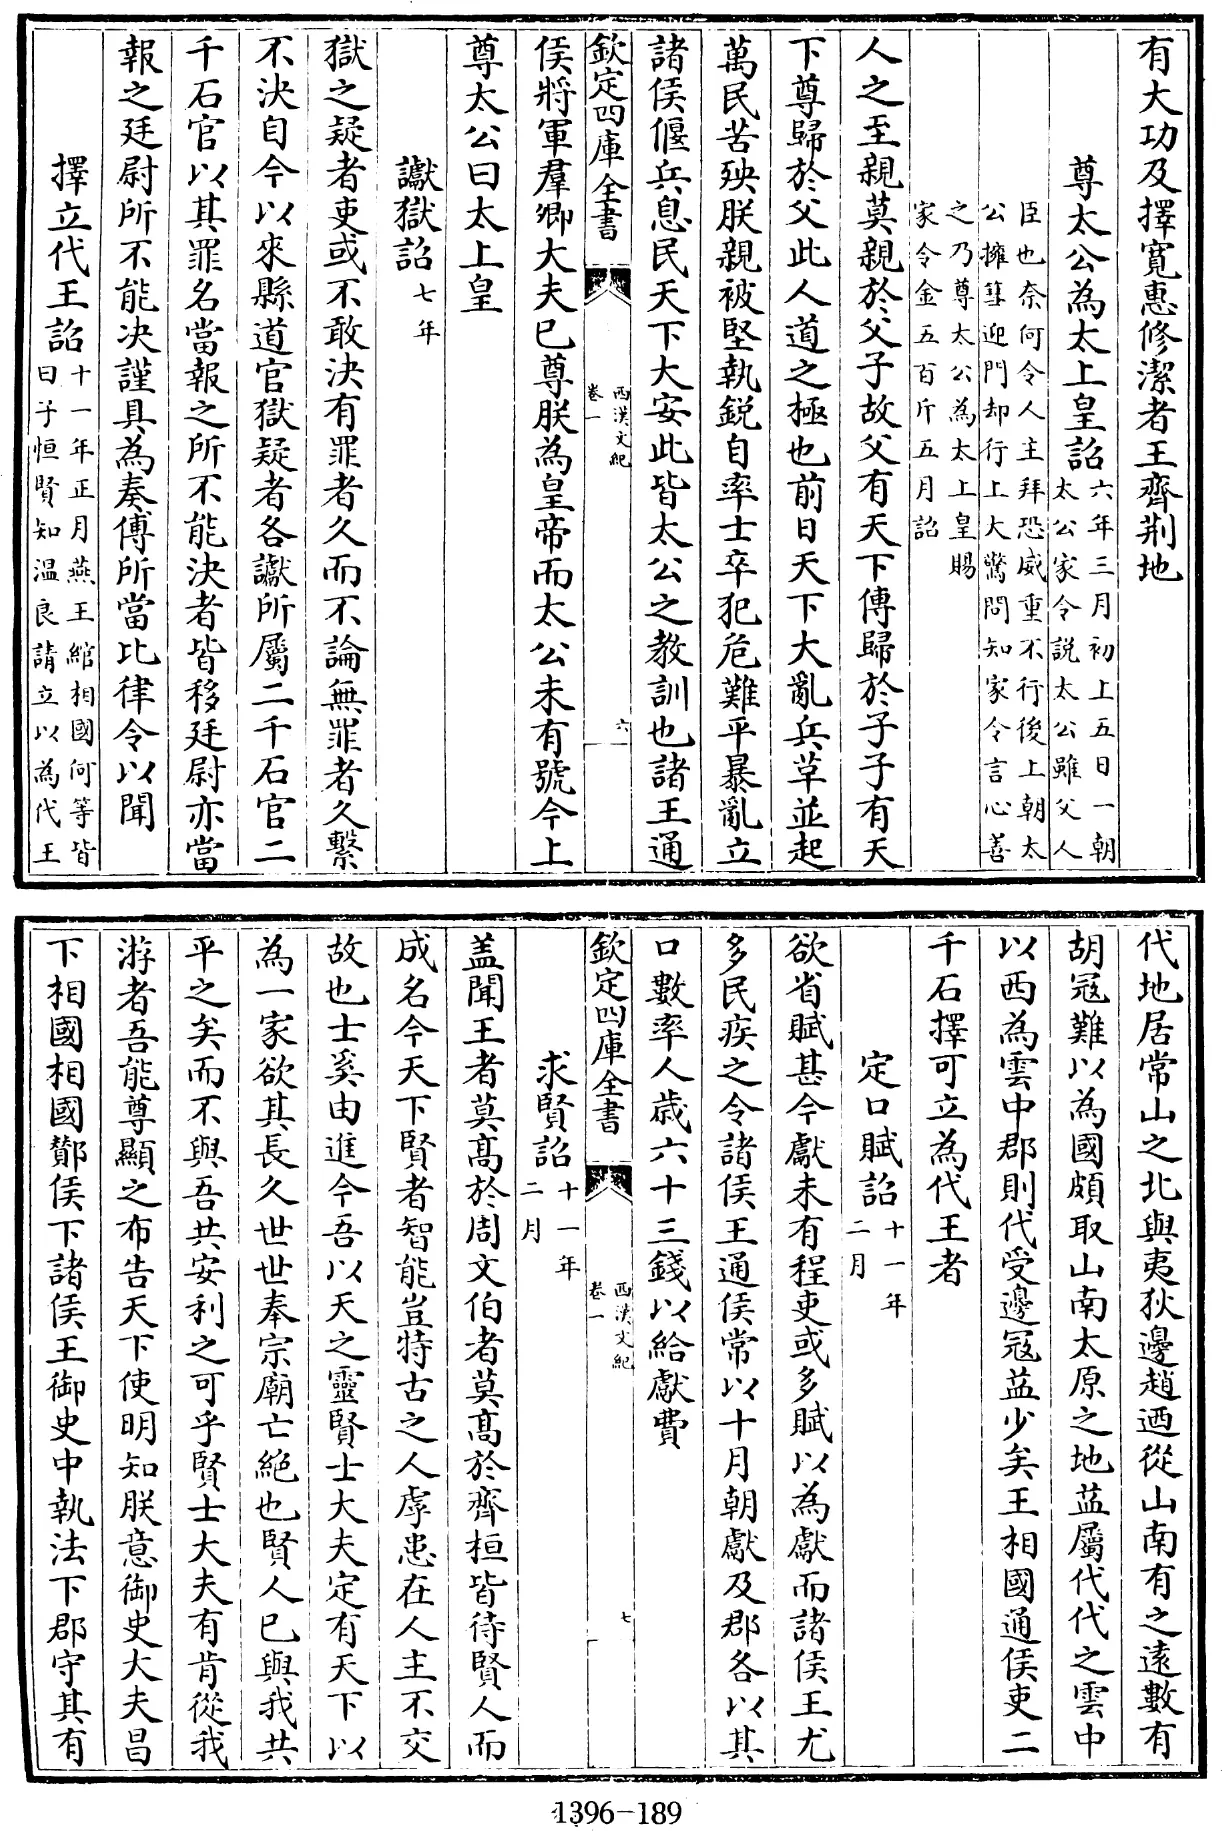 有大功及擇寛惠修潔者王齊荆地
尊太公為太上皇詔
六年三月初上五日一朝
太公家令説太公雖父人
臣也奈何令人主拜恐威重不行後上朝太
公擁篲迎門却行上大驚問知家令言心善
之乃尊太公為太上皇賜
家令金五百斤五月詔
人之至親莫親於父子故父有天下傳歸於子子有天
下尊歸於父此人道之極也前日天下大亂兵革並起
萬民苦殃朕親被堅執鋭自率士卒犯危難平暴亂立
諸侯偃兵息民天下大安此皆太公之教訓也諸王通
欽定四庫全書
西漢文紀
卷一
六
侯將軍羣卿大夫已尊朕為皇帝而太公未有號今上
尊太公曰太上皇
讞獄詔
七年
獄之疑者吏或不敢決有罪者久而不論無罪者久繫
不決自今以來縣道官獄疑者各讞所屬二千石官二
千石官以其罪名當報之所不能決者皆移廷尉亦當
報之廷尉所不能决謹具為奏傅所當比律令以聞
擇立代王詔
十一年正月燕王綰相國何等皆
曰子恒賢知温良請立以為代王
代地居常山之北與夷狄邊趙迺從山南有之遠數有
胡冦難以為國頗取山南太原之地益屬代代之雲中
以西為雲中郡則代受邊冦益少矣王相國通侯吏二
千石擇可立為代王者
定口賦詔
十一年
二月
欲省賦甚今獻未有程吏或多賦以為獻而諸侯王尤
多民疾之令諸侯王通侯常以十月朝獻及郡各以其
口數率人歲六十三錢以給獻費
欽定四庫全書
西漢文紀
卷一
七
求賢詔
十一年
二月
盖聞王者莫髙於周文伯者莫髙於齊桓皆待賢人而
成名今天下賢者智能豈特古之人虖患在人主不交
故也士奚由進今吾以天之靈賢士大夫定有天下以
為一家欲其長久世世奉宗廟亡絶也賢人已與我共
平之矣而不與吾共安利之可乎賢士大夫有肯從我
游者吾能尊顯之布告天下使明知朕意御史大夫昌
下相國相國酇侯下諸侯王御史中執法下郡守其有
1396-189